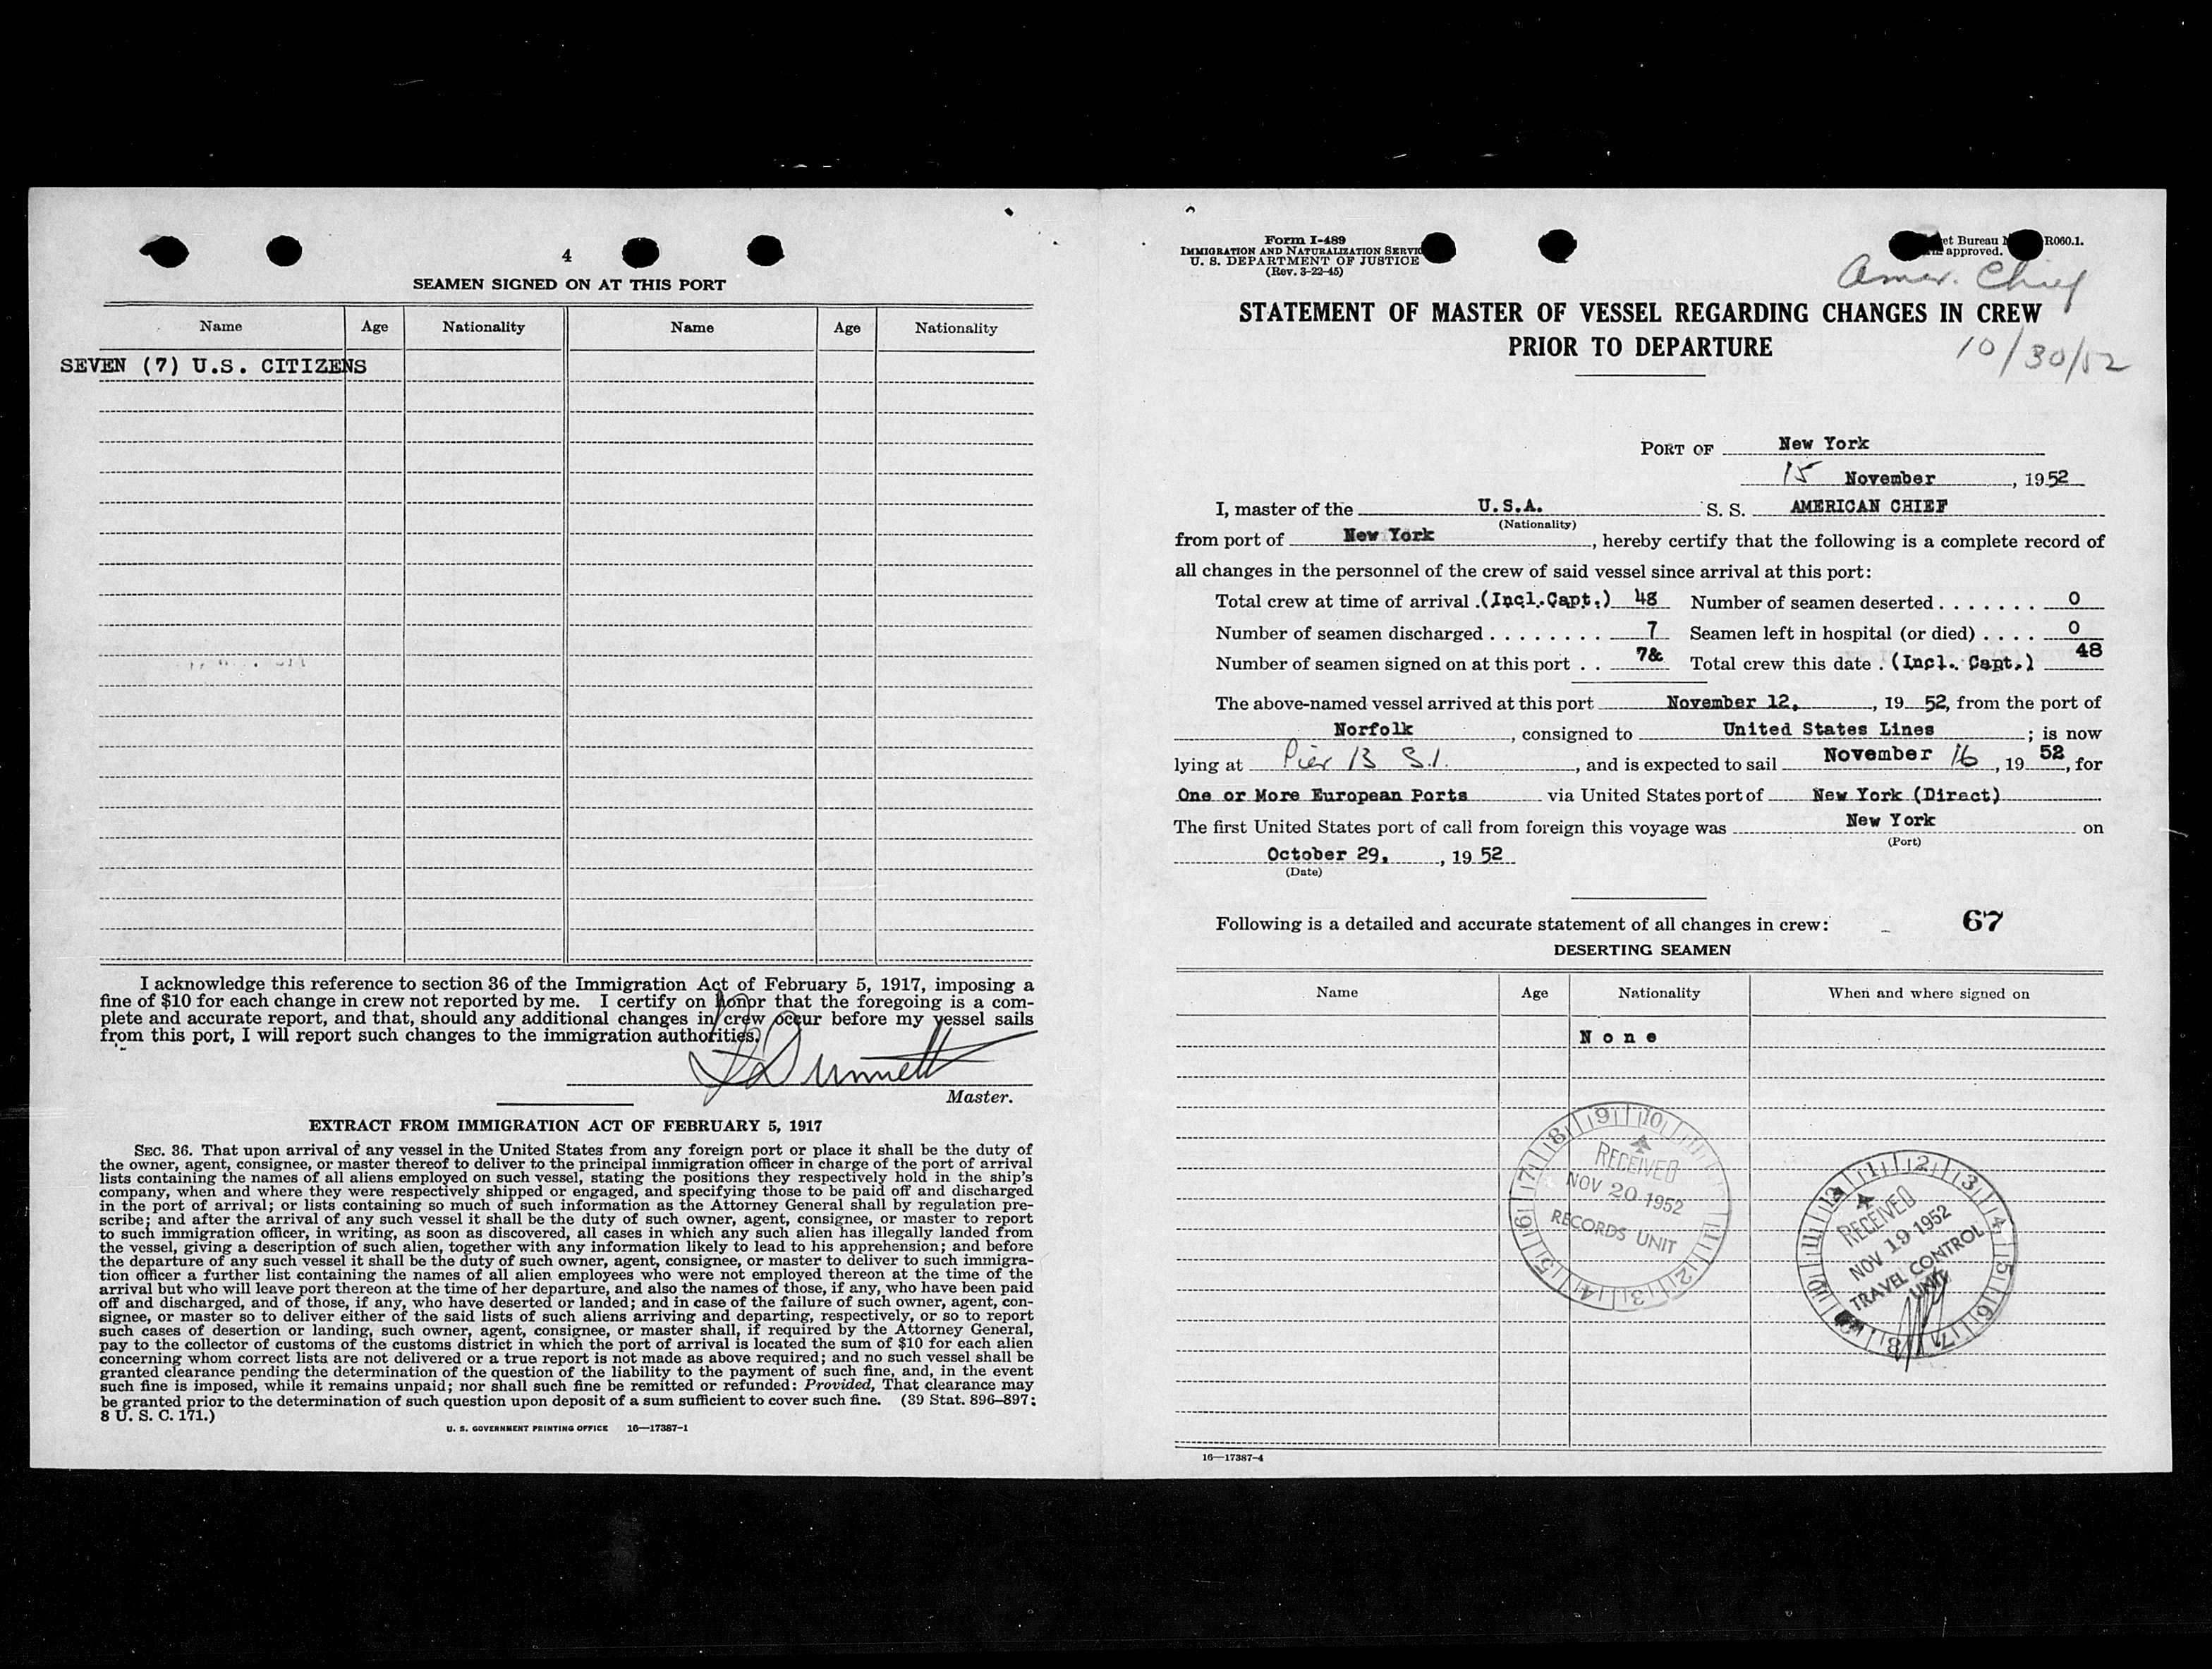 4
SEAMEN SIGNED ON AT THIS PORT
Name Age Nationality Name Age Nationality
SEVEN (7) U.S. CITIZENS
I acknowledge this reference to section 36 of the Immigration Act of February 5, 1917, imposing a
fine of $10 for each change in crew not reported by me. I certify on honor that the foregoing is a com-
plete and accurate report, and that, should any additional changes in crew occur before my vessel sails
from this port, I will report such changes to the immigration authorities.
Master.
EXTRACT FROM IMMIGRATION ACT OF FEBRUARY 5, 1917
SEC. 36. That upon arrival of any vessel in the United States from any foreign port or place it shall be the duty of
the owner, agent, consignee, or master thereof to deliver to the principal immigration officer in charge of the port of arrival
lists containing the names of all aliens employed on such vessel, stating the positions they respectively hold in the ship's
company, when and where they were respectively shipped or engaged, and specifying those to be paid off and discharged
in the port of arrival; or lists containing so much of such information as the Attorney General shall by regulation pre-
scribe; and after the arrival of any such vessel it shall be the duty of such owner, agent, consignee, or master to report
to such immigration officer, in writing, as soon as discovered, all cases in which any such alien has illegally landed from
the vessel, giving a description of such alien, together with any information likely to lead to his apprehension; and before
the departure of any such vessel it shall be the duty of such owner, agent, consignee, or master to deliver to such immigra-
tion officer a further list containing the names of all alien employees who were not employed thereon at the time of the
arrival but who will leave port thereon at the time of her departure, and also the names of those, if any, who have been paid
off and discharged, and of those, if any, who have deserted or landed; and in case of the failure of such owner, agent, con-
signee, or master so to deliver either of the said lists of such aliens arriving and departing, respectively, or so to report
such cases of desertion or landing, such owner, agent, consignee, or master shall, if required by the Attorney General,
pay to the collector of customs of the customs district in which the port of arrival is located the sum of $10 for each alien
concerning whom correct lists are not delivered or a true report is not made as above required; and no such vessel shall be
granted clearance pending the determination of the question of the liability to the payment of such fine, and, in the event
such fine is imposed, while it remains unpaid; nor shall such fine be remitted or refunded: Provided, That clearance may
be granted prior to the determination of such question upon deposit of a sum sufficient to cover such fine. (39 Stat. 896–897;
8 U. S. C. 171.)
U. S. GOVERNMENT PRINTING OFFICE 16—17387-1
Form I-489
IMMIGRATION AND NATURALIZATION SERVIC
U. S. DEPARTMENT OF JUSTICE
(Rev. 3-22-45)
et Bureau R060.1.
approved.
Amer. Chief
10/30/52
STATEMENT OF MASTER OF VESSEL REGARDING CHANGES IN CREW
PRIOR TO DEPARTURE
PORT OF New York
15 November, 1952
I, master of the U.S.A. S. S. AMERICAN CHIEF
(Nationality)
from port of New York, hereby certify that the following is a complete record of
all changes in the personnel of the crew of said vessel since arrival at this port:
Total crew at time of arrival .(Incl.Capt.) 48 Number of seamen deserted . . . . . . . 0
Number of seamen discharged . . . . . . . . 7 Seamen left in hospital (or died) . . . . 0
Number of seamen signed on at this port . . 7& Total crew this date . (Incl. Capt.) 48
The above-named vessel arrived at this port November 12, , 19 52, from the port of
Norfolk, consigned to United States Lines; is now
lying at Pier 13 S.I., and is expected to sail November 16, 19 52, for
One or More European Ports via United States port of New York (Direct)
The first United States port of call from foreign this voyage was New York on
(Port)
October 29, , 19 52
(Date)
Following is a detailed and accurate statement of all changes in crew: 67
DESERTING SEAMEN
Name Age Nationality When and where signed on
None
RECEIVED
NOV 20 1952
RECORDS UNIT
RECEIVED
NOV 19 1952
TRAVEL CONTROL
UNIT
16—17387-4